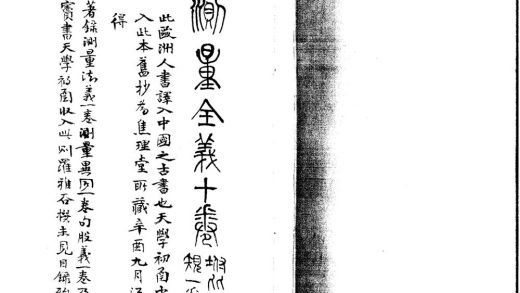 測量全義十卷
此歐洲人書譯入中國之古書也天學初函中
入此本舊抄為焦理堂所藏辛酉九月
得
著錄測量法義一卷測量異同一卷句股義一卷
實書天學初函收入此則羅雅谷撰未見目錄